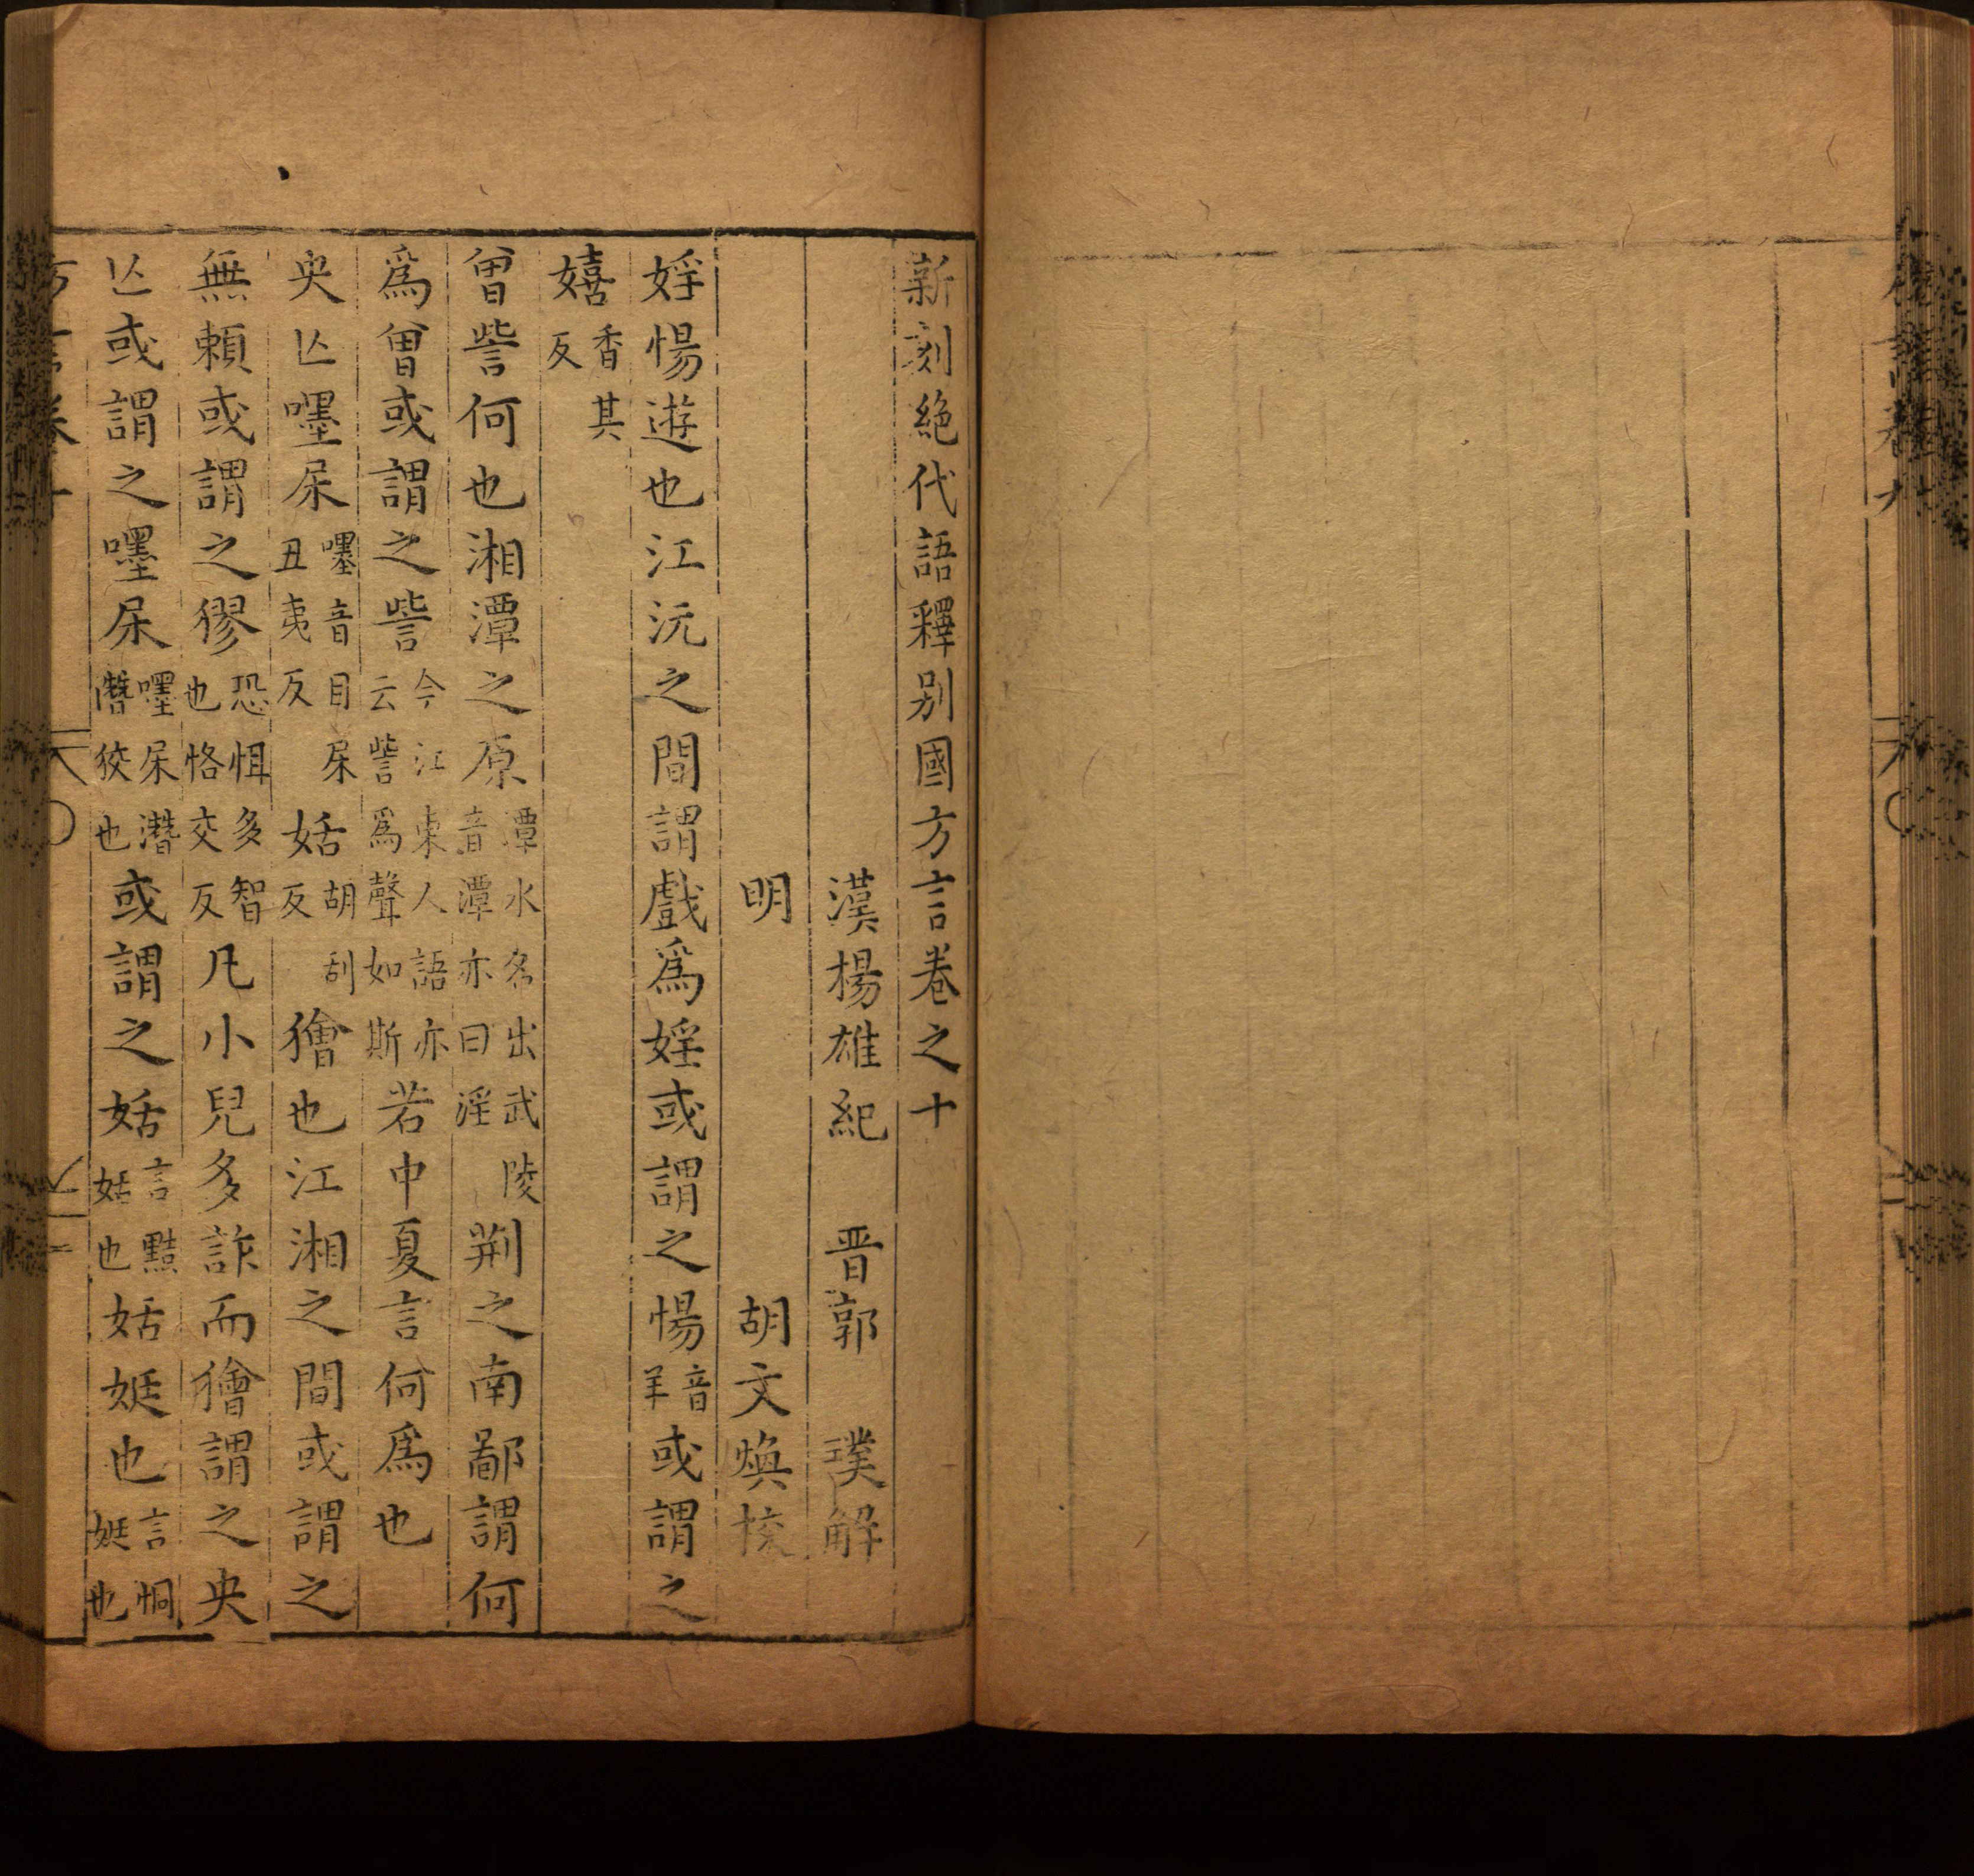 新刻絶代語釋别國方言卷之十
漢楊雄紀　晋郭　璞解
明　胡文煥校
婬愓遊也江沅之間謂戲爲婬或謂之愓音羊或謂之
嬉香其反
曾訾何也湘潭之原潭水名出武陵音潭亦曰淫荆之南鄙謂何
爲曾或謂之訾今江東人語亦云訾爲聲如斯若中夏言何爲也
央亾嚜杘嚜音目杘丑夷反姡胡刮反獪也江湘之間或謂之
無賴或謂之㺒恐㤖多智也恪交反凡小兒多詐而獪謂之央
亾或謂之嚜杘嚜杘潛潛狡也或謂之姡言黠姡也姡娗也言恫娗也
方言卷十